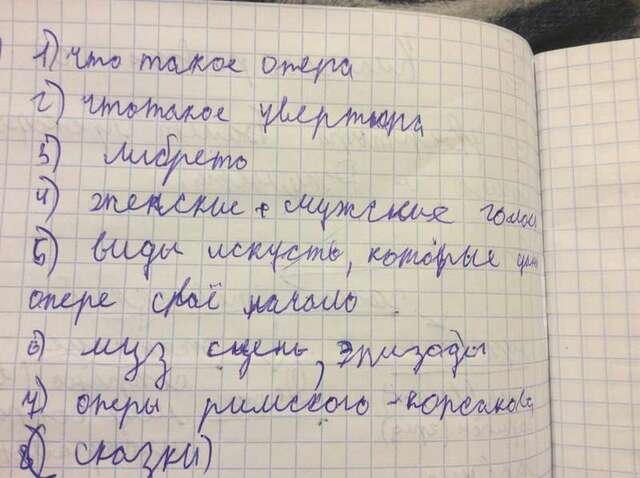 1) что такое опера
2) что такое увертюра
3) либрето
4) женские + мужские голос
5) виды искусств, которые
опере своё начало
6) муз сцены, эпизоды
7) оперы римского-корсаков
8) сказки)